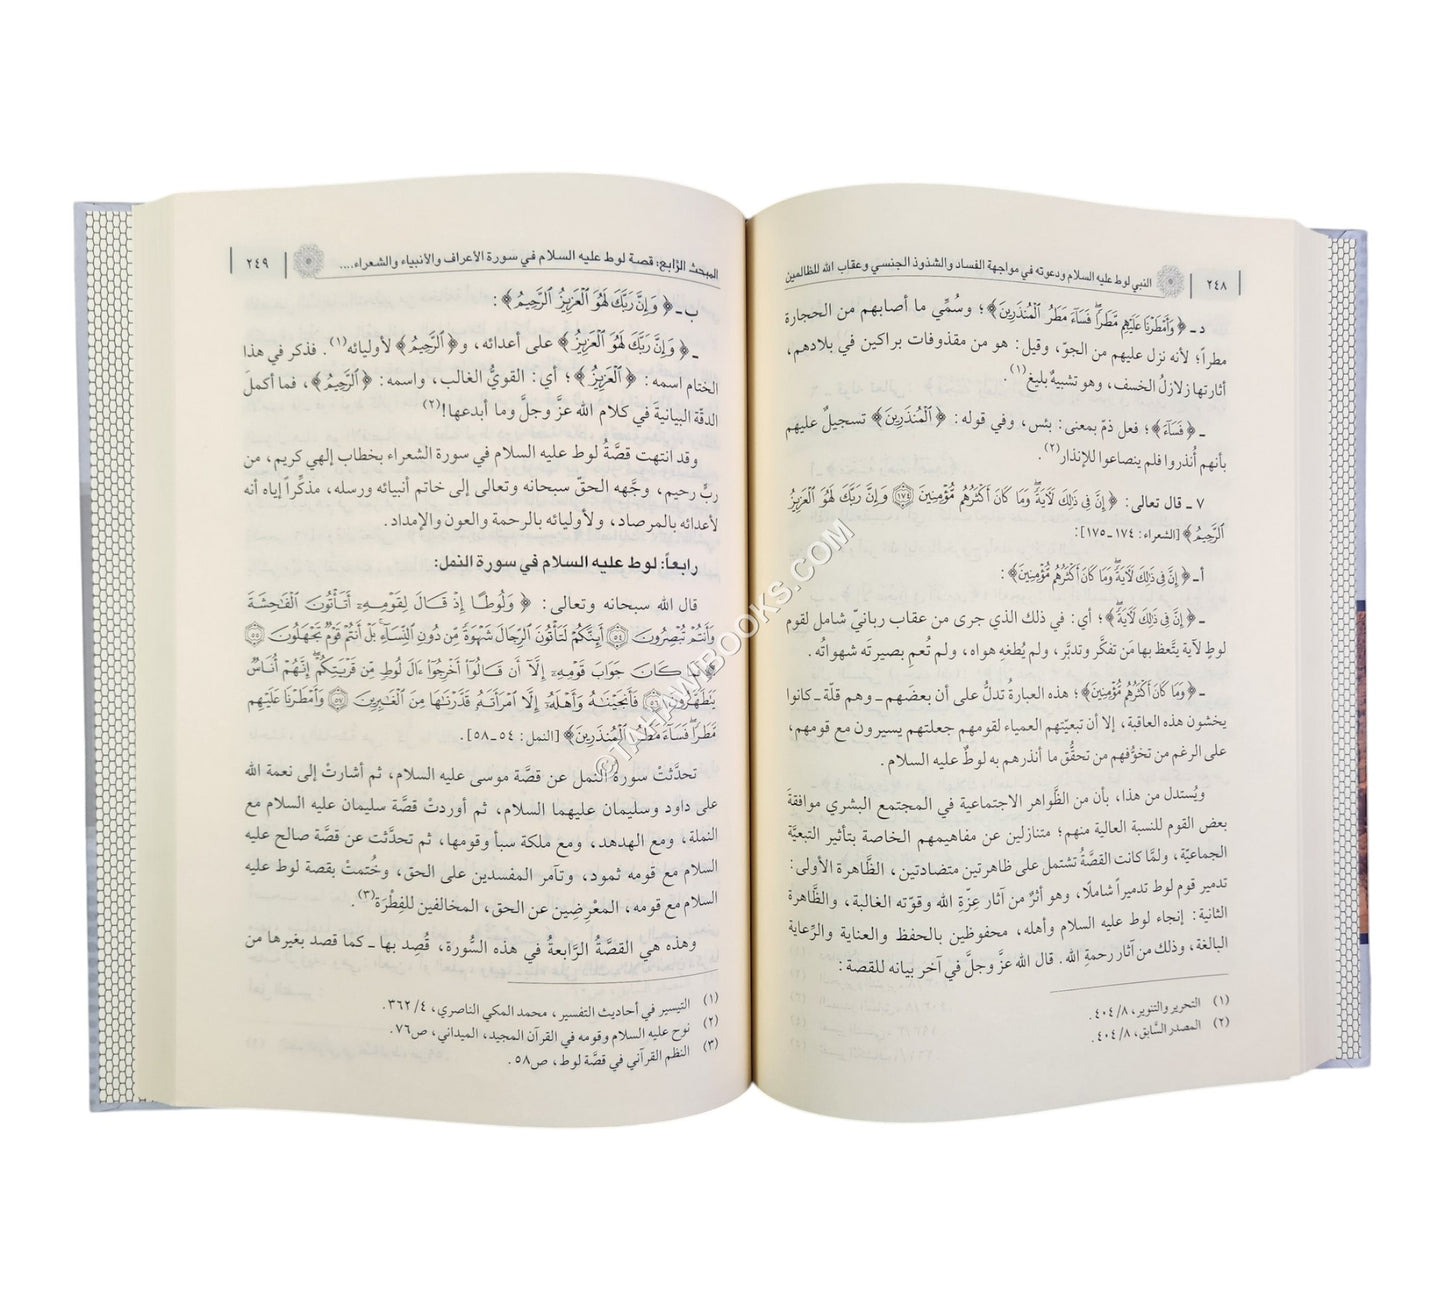 ٢٤٨ النبي لوط عليه السلام ودعوته في مواجهة الفساد والشذوذ الجنسي وعقاب الله للظالمين
د ـ ﴿وَأَمْطَرْنَا عَلَيْهِم مَّطَرًا ۖ فَسَاءَ مَطَرُ الْمُنذَرِينَ﴾؛ وسُمِّي ما أصابهم من الحجارة
مطراً؛ لأنه نزل عليهم من الجوّ، وقيل: هو من مقذوفات براكين في بلادهم،
أثارتها زلازلُ الخسف، وهو تشبيهٌ بليغ(١).
ـ ﴿فَسَاءَ﴾؛ فعل ذمّ بمعنى: بئس، وفي قوله: ﴿الْمُنذَرِينَ﴾ تسجيلٌ عليهم
بأنهم أُنذروا فلم ينصاعوا للإنذار(٢).
٧ ـ قال تعالى: ﴿إِنَّ فِي ذَٰلِكَ لَآيَةً ۖ وَمَا كَانَ أَكْثَرُهُم مُّؤْمِنِينَ ١٧٤ وَإِنَّ رَبَّكَ لَهُوَ الْعَزِيزُ
الرَّحِيمُ﴾ [الشعراء: ١٧٤ـ١٧٥]:
أ ـ ﴿إِنَّ فِي ذَٰلِكَ لَآيَةً ۖ وَمَا كَانَ أَكْثَرُهُم مُّؤْمِنِينَ﴾:
ـ ﴿إِنَّ فِي ذَٰلِكَ لَآيَةً﴾؛ أي: في ذلك الذي جرى من عقاب ربانيّ شامل لقوم
لوطٍ لآية يتَّعظ بها مَن تفكَّر وتدبَّر، ولم يُطغهِ هواه، ولم تُعمِ بصيرته شهواتُه.
ـ ﴿وَمَا كَانَ أَكْثَرُهُم مُّؤْمِنِينَ﴾؛ هذه العبارةُ تدلُّ على أن بعضَهم ـ وهم قلّة ـ كانوا
يخشون هذه العاقبة، إلا أن تبعيّتهم العمياء لقومهم جعلتهم يسيرون مع قومهم،
على الرغم من تخوُّفهم من تحقُّق ما أنذرهم به لوطٌ عليه السلام.
ويُستدل من هذا، بأن من الظَّواهر الاجتماعية في المجتمع البشري موافقةَ
بعض القوم للنسبة العالية منهم؛ متنازلين عن مفاهيمهم الخاصة بتأثير التبعيَّة
الجماعيّة، ولمَّا كانت القصَّةُ تشتمل على ظاهرتين متضادتين، الظَّاهرة الأولى:
تدمير قوم لوط تدميراً شاملاً، وهو أثرٌ من آثار عِزّةِ الله وقوّته الغالبة، والظَّاهرة
الثانية: إنجاء لوط عليه السلام وأهله، محفوظين بالحفظ والعناية والرِّعاية
البالغة، وذلك من آثار رحمةِ الله. قال الله عزَّ وجلَّ في آخر بيانه للقصة:
(١) التحرير والتنوير، ٤٠٤/٨.
(٢) المصدر السَّابق، ٤٠٤/٨.
المبحث الرَّابع: قصة لوط عليه السلام في سورة الأعراف والأنبياء والشعراء.... ٢٤٩
ب ـ ﴿وَإِنَّ رَبَّكَ لَهُوَ الْعَزِيزُ الرَّحِيمُ﴾:
ـ ﴿وَإِنَّ رَبَّكَ لَهُوَ الْعَزِيزُ﴾ على أعدائه، و﴿الرَّحِيمُ﴾ لأوليائه(١). فذكر في هذا
الختام اسمه: ﴿الْعَزِيزُ﴾؛ أي: القويُّ الغالب، واسمه: ﴿الرَّحِيمُ﴾، فما أكملَ
الدقّة البيانيةَ في كلام الله عزَّ وجلَّ وما أبدعها!(٢)
وقد انتهت قصَّةُ لوط عليه السلام في سورة الشعراء بخطاب إلهي كريم، من
ربٍّ رحيم، وجَّهه الحقّ سبحانه وتعالى إلى خاتم أنبيائه ورسله، مذكِّراً إياه أنه
لأعدائه بالمرصاد، ولأوليائه بالرحمة والعون والإمداد.
رابعاً: لوط عليه السلام في سورة النمل:
قال الله سبحانه وتعالى: ﴿وَلُوطًا إِذْ قَالَ لِقَوْمِهِ أَتَأْتُونَ الْفَاحِشَةَ
وَأَنتُمْ تُبْصِرُونَ ٥٤ أَئِنَّكُمْ لَتَأْتُونَ الرِّجَالَ شَهْوَةً مِّن دُونِ النِّسَاءِ ۚ بَلْ أَنتُمْ قَوْمٌ تَجْهَلُونَ ٥٥
۞ فَمَا كَانَ جَوَابَ قَوْمِهِ إِلَّا أَن قَالُوا أَخْرِجُوا آلَ لُوطٍ مِّن قَرْيَتِكُمْ ۖ إِنَّهُمْ أُنَاسٌ
يَتَطَهَّرُونَ ٥٦ فَأَنجَيْنَاهُ وَأَهْلَهُ إِلَّا امْرَأَتَهُ قَدَّرْنَاهَا مِنَ الْغَابِرِينَ ٥٧ وَأَمْطَرْنَا عَلَيْهِم
مَّطَرًا ۖ فَسَاءَ مَطَرُ الْمُنذَرِينَ﴾ [النمل: ٥٤ـ٥٨].
تحدَّثتْ سورةُ النمل عن قصَّة موسى عليه السلام، ثم أشارتْ إلى نعمة الله
على داود وسليمان عليهما السلام، ثم أوردتْ قصَّة سليمان عليه السلام مع
النملة، ومع الهدهد، ومع ملكة سبأ وقومها، ثم تحدَّثت عن قصَّة صالح عليه
السلام مع قومه ثمود، وتآمر المفسدين على الحق، وخُتمتْ بقصة لوط عليه
السلام مع قومه، المعْرِضِين عن الحق، المخالفين للفِطْرَة(٣).
وهذه هي القصَّةُ الرَّابعةُ في هذه السُّورة، قُصِد بها ـ كما قصد بغيرها من
(١) التيسير في أحاديث التفسير، محمد المكي الناصري، ٣٦٢/٤.
(٢) نوح عليه السلام وقومه في القرآن المجيد، الميداني، ص٧٦.
(٣) النظم القرآني في قصَّة لوط، ص٥٨.